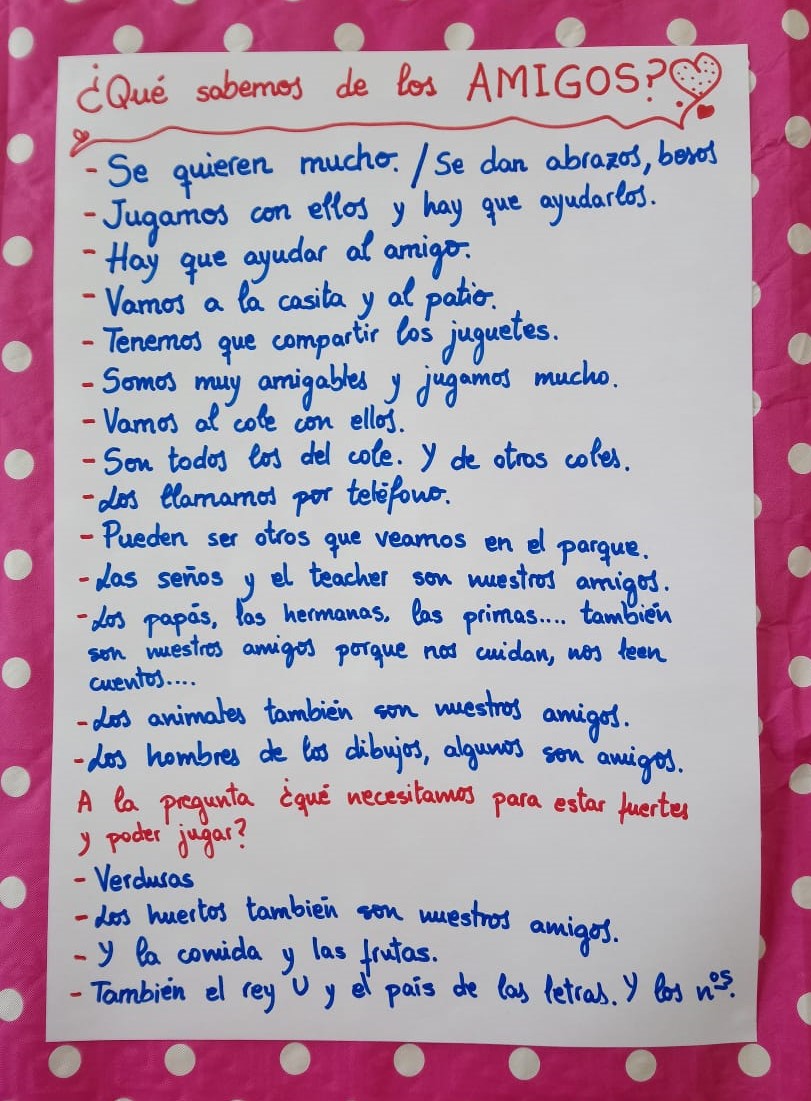 ¿Qué sabemos de los AMIGOS?
- Se quieren mucho. / Se dan abrazos, besos
- Jugamos con ellos y hay que ayudarlos.
- Hay que ayudar al amigo.
- Vamos a la casita y al patio.
- Tenemos que compartir los juguetes.
- Somos muy amigables y jugamos mucho.
- Vamos al cole con ellos.
- Son todos los del cole. Y de otros coles.
- Los llamamos por teléfono.
- Pueden ser otros que veamos en el parque.
- Las seños y el teacher son nuestros amigos.
- Los papás, las hermanas, las primas.... también
son nuestros amigos porque nos cuidan, nos leen
cuentos....
- Los animales también son nuestros amigos.
- Los hombres de los dibujos, algunos son amigos.
A la pregunta ¿qué necesitamos para estar fuertes
y poder jugar?
- Verduras
- Los huertos también son nuestros amigos.
- Y la comida y las frutas.
- También el rey U y el país de las letras. Y los nºs.